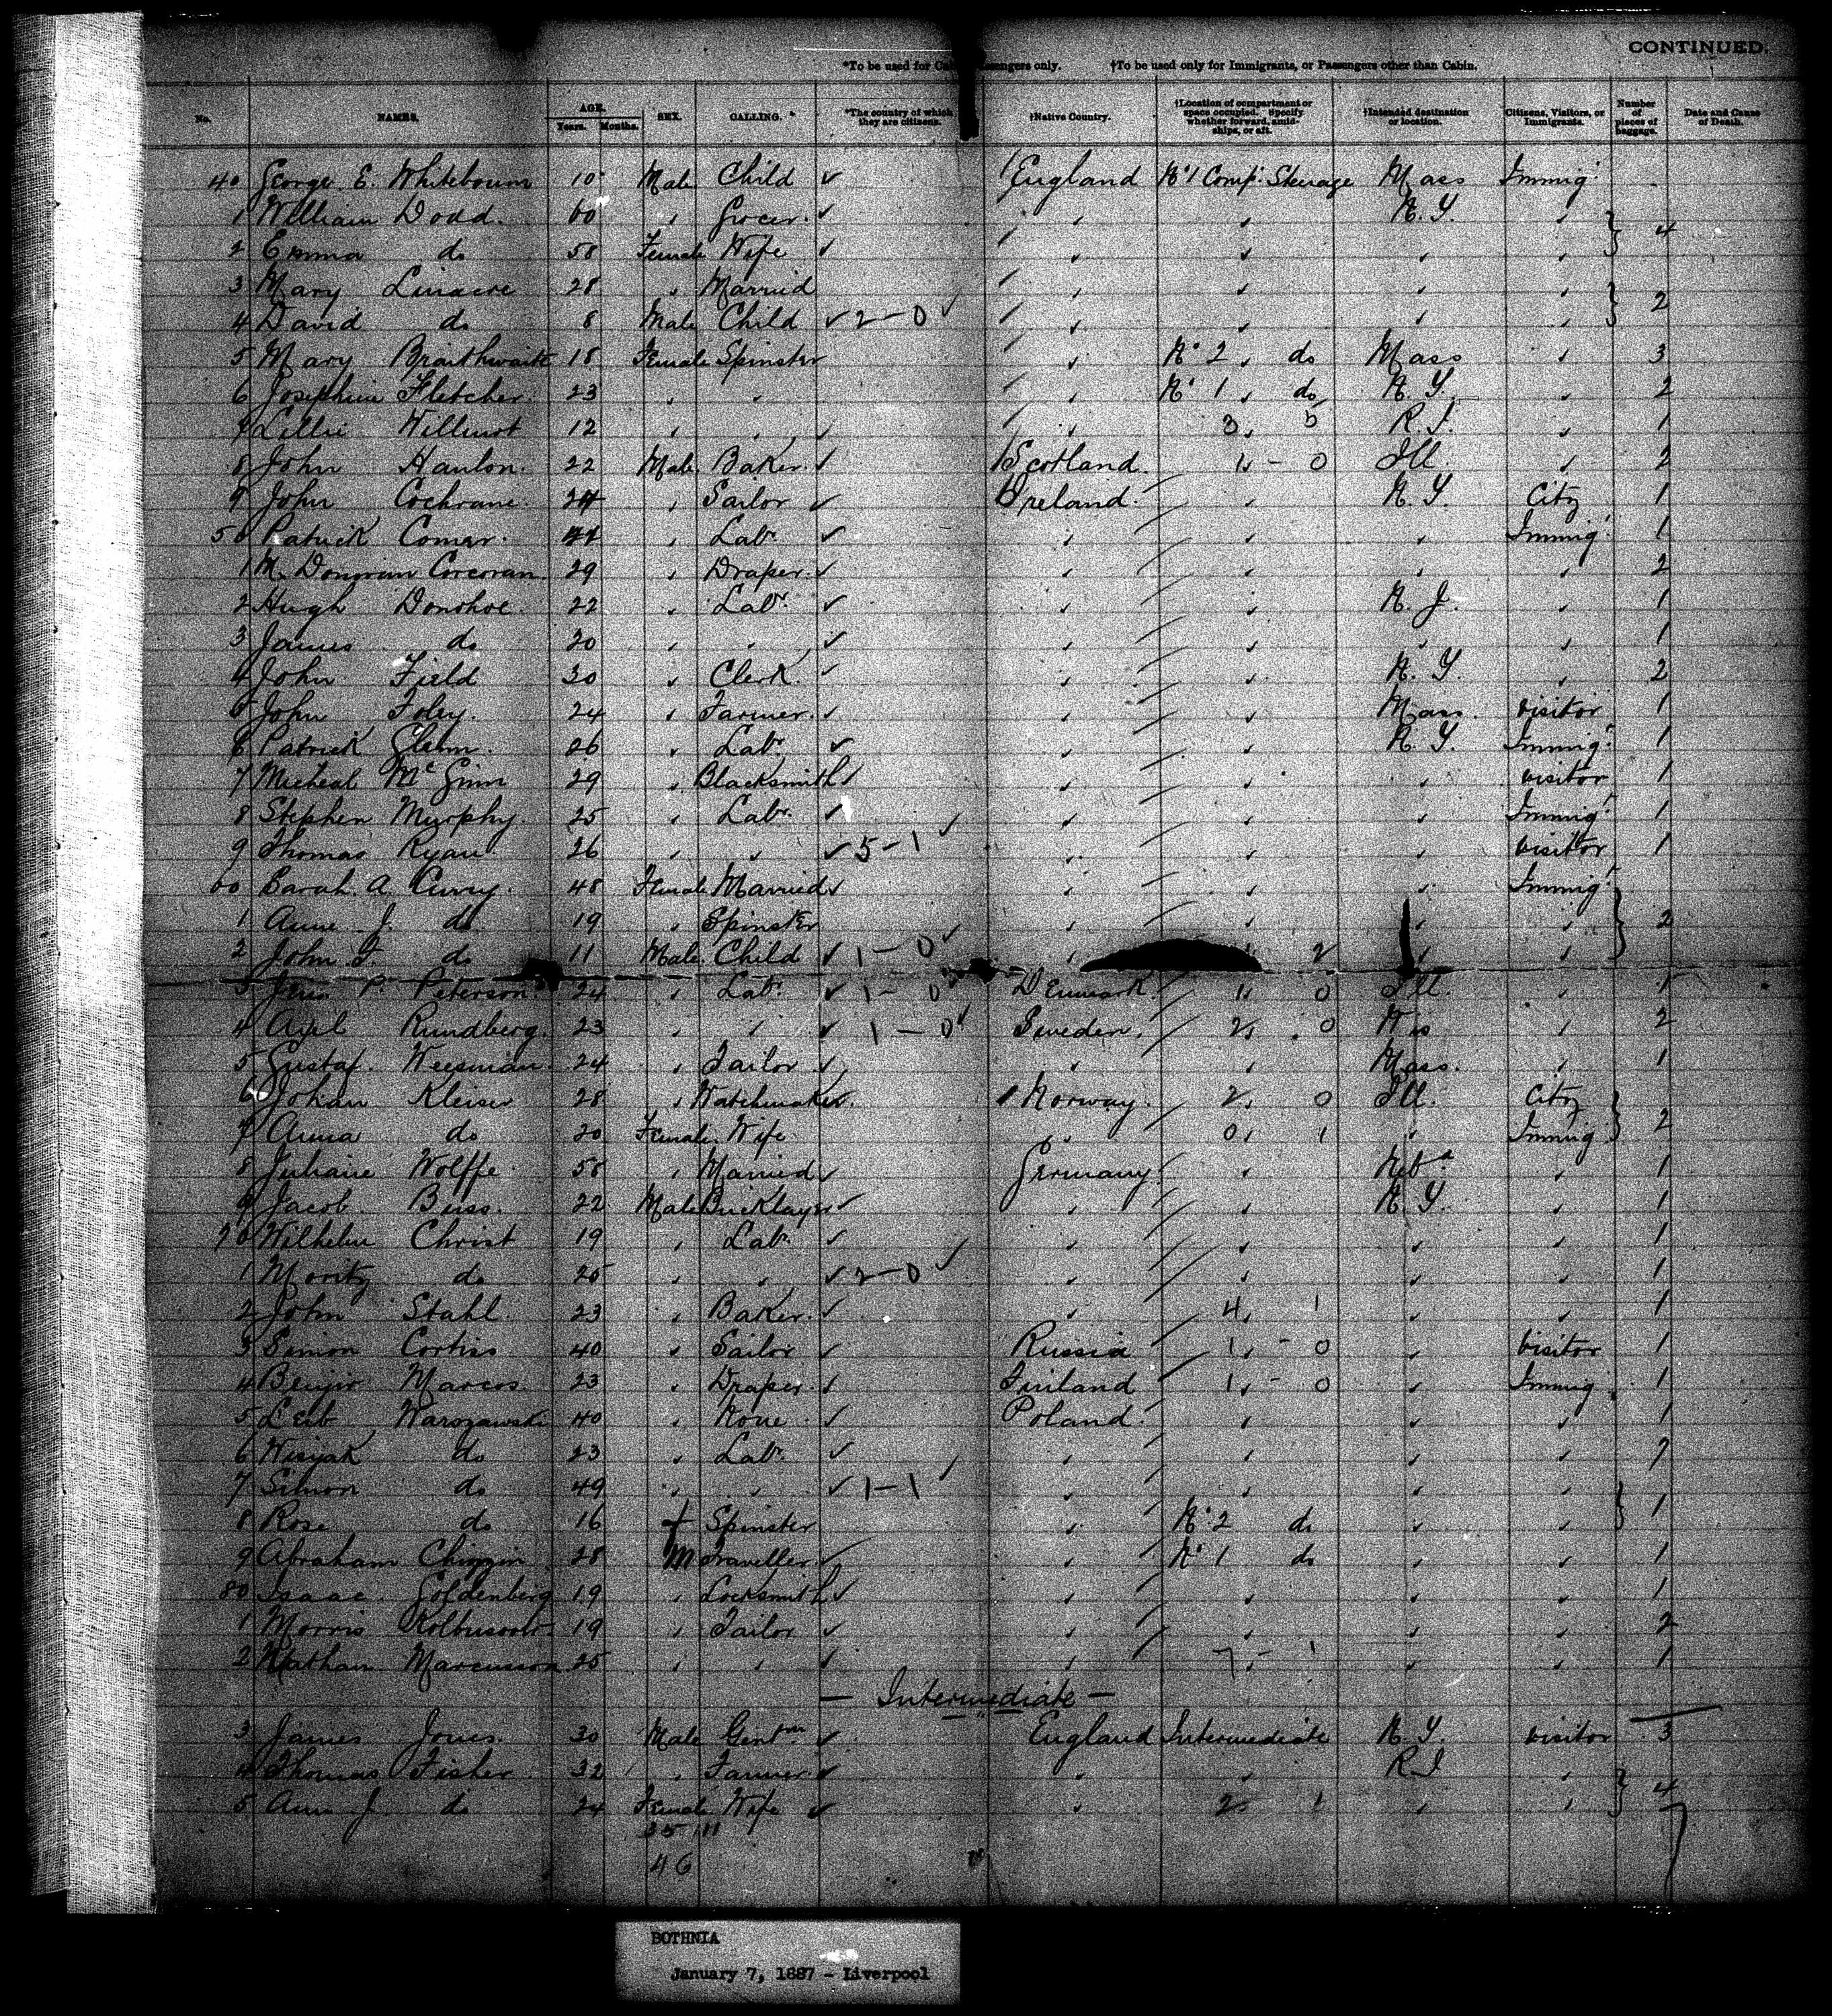 CONTINUED.
*To be used for Cabin Passengers only. †To be used only for Immigrants, or Passengers other than Cabin.
No. NAMES. AGE. Years. Months. SEX. CALLING. *The country of which they are citizens. †Native Country. †Location of compartment or space occupied. Specify whether forward, amidships, or aft. †Intended destination or location. Citizens, Visitors, or Immigrants. Number of pieces of baggage. Date and Cause of Death.
40 George E. Whitebourn 10 Male Child ✓ England No 1 Compt Steerage Mass Immigt
1 William Dodd. 60 " Grocer. ✓ " " N. Y. "
2 Emma do 58 Female Wife ✓ " " " " 4
3 Mary Linacre 28 " Married " " " "
4 David do 8 Male Child ✓ 2-0 ✓ " " " " 2
5 Mary Braithwaite 18 Female Spinster " No 2 " do Mass " 3
6 Josephine Fletcher 23 " " " No 1 " do N. Y. " 2
7 Lillie 12 " " " 3 5 R. I. " 1
8 John Hanlon. 22 Male Baker. ✓ Scotland. 1 - 0 Ill. " 2
9 John Cochrane. 24 " Sailor ✓ Ireland. " N. Y. City 1
50 Patrick Comer. " Labr ✓ " " " Immigt 1
1 M. Donovan Corcoran. 29 " Draper. ✓ " " " " 2
2 Hugh Donohoe. 22 " Labr ✓ " " N. J. " 1
3 James do 20 " " ✓ " " " " 1
4 John Field 30 " Clerk. ✓ " " N. Y. " 2
5 John Foley. 24 " Farmer. ✓ " " Mass. visitor 1
6 Patrick 26 " Labr ✓ " " N. Y. Immigt 1
7 Micheal McGinn 29 " Blacksmith ✓ " " " visitor 1
8 Stephen Murphy. 25 " Labr ✓ " " " Immigt 1
9 Thomas Ryan 26 " " ✓ 5-1 ✓ " " " visitor 1
60 Sarah. A. Curry. 48 Female Married ✓ " " " Immigt
1 Anne J. do 19 " Spinster " " " " 2
2 John F. do 11 Male. Child ✓ 1-0 ✓ " 2 " "
3 Jens P. Peterson. 24 " Labr ✓ 1-0 Denmark. 1 0 Ill. " 1
4 Axel Rundberg. 23 " " ✓ 1-0 ✓ Sweden. 2 0 Wis " 2
5 Gustaf. Weesman. 24 " Tailor ✓ " Mass. " 1
6 Johan Kleiser 28 " Watchmaker. Norway. 2 0 Ill. City
7 Anna do 20 Female. Wife " 0 1 " Immigt 2
8 Juliane Wolffe 58 " Married ✓ Germany. " Neba " 1
9 Jacob. Buss. 22 Male Bricklayer ✓ " " N. Y. " 1
70 Wilhelm Christ 19 " Labr ✓ " " " " 1
1 Moritz do 25 " " ✓ 2-0 ✓ " " " " 1
2 John Stahl. 23 " Baker. ✓ " 4 1 " " 1
3 Simon Cortiss 40 " Sailor ✓ Russia 1 - 0 " visitor 1
4 Marcos. 23 " Draper. ✓ Finland 1 - 0 " Immigt 1
5 Leib Warszawski 40 " None ✓ Poland. " " " 1
6 do 23 " Labr ✓ " " " "
7 Simon do 49 " " ✓ 1-1 ✓ " " " "
8 Rose do 16 f Spinster " No 2 do " " 1
9 Abraham 28 M Traveller ✓ " No 1 do " " 1
80 Isaac Goldenberg 19 " Locksmith ✓ " " " " 1
1 Morris 19 " Tailor ✓ " " " " 2
2 Nathan Marcusson 25 " " ✓ " 7 - 1 " " 1
— Intermediate —
3 James Jones. 30 Male Gentm ✓ England Intermediate N. Y. visitor 3
4 Thomas Fisher 32 " Farmer. ✓ " " R. I "
5 Ann J. do 24 Female Wife ✓ " 2 1 " " 4
46
BOTHNIA
January 7, 1887 - Liverpool